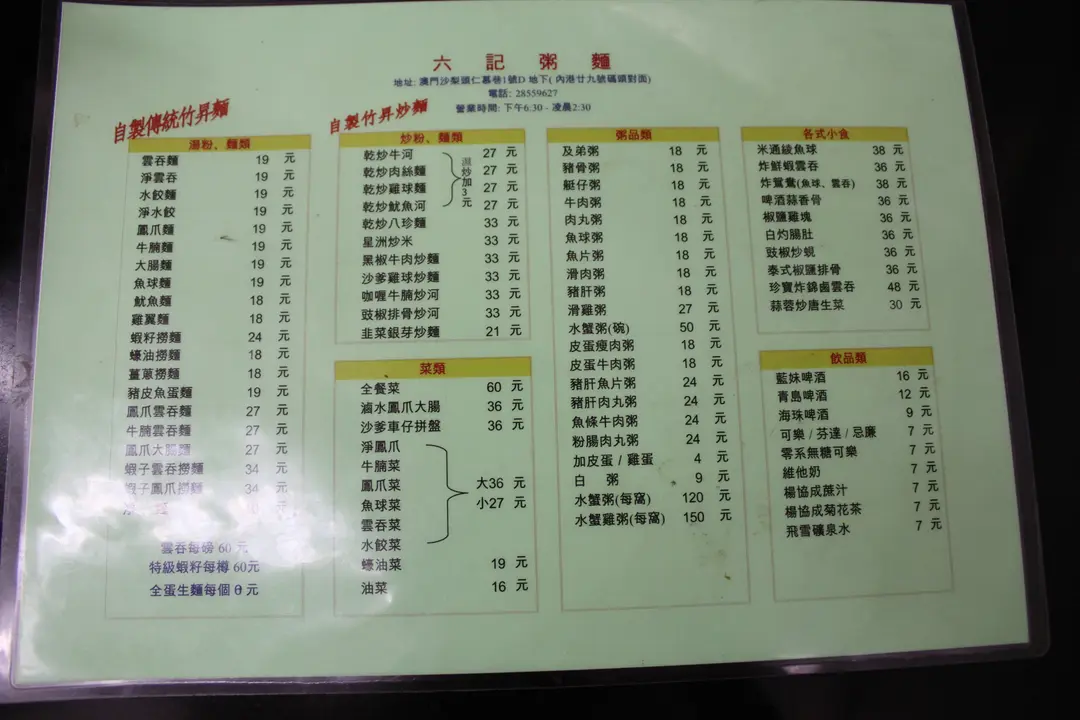 六記粥麵
地址: 澳門沙梨頭仁慕巷1號D 地下( 內港廿九號碼頭對面)
電話: 28559627
營業時間: 下午6:30 - 凌晨2:30
自製傳統竹昇麵
湯粉、麵類
雲吞麵 19 元
淨雲吞 19 元
水餃麵 19 元
淨水餃 19 元
鳳爪麵 19 元
牛腩麵 19 元
大腸麵 19 元
魚球麵 19 元
魷魚麵 18 元
雞翼麵 18 元
蝦籽撈麵 24 元
蠔油撈麵 18 元
薑蔥撈麵 18 元
豬皮魚蛋麵 19 元
鳳爪雲吞麵 27 元
牛腩雲吞麵 27 元
鳳爪大腸麵 27 元
蝦子雲吞撈麵 34 元
蝦子鳳爪撈麵 34 元
雲吞每磅 60 元
特級蝦籽每樽 60元
全蛋生麵每個 元
自製竹昇炒麵
炒粉、麵類
乾炒牛河 27 元
乾炒肉絲麵 27 元
乾炒雞球麵 27 元
乾炒魷魚河 27 元
濕炒加3元
乾炒八珍麵 33 元
星洲炒米 33 元
黑椒牛肉炒麵 33 元
沙爹雞球炒麵 33 元
咖喱牛腩炒河 33 元
豉椒排骨炒河 33 元
韭菜銀芽炒麵 21 元
菜類
全餐菜 60 元
滷水鳳爪大腸 36 元
沙爹車仔拼盤 36 元
淨鳳爪
牛腩菜
鳳爪菜 大36 元
魚球菜 小27 元
雲吞菜
水餃菜
蠔油菜 19 元
油菜 16 元
粥品類
及弟粥 18 元
豬骨粥 18 元
艇仔粥 18 元
牛肉粥 18 元
肉丸粥 18 元
魚球粥 18 元
魚片粥 18 元
滑肉粥 18 元
豬肝粥 18 元
滑雞粥 27 元
水蟹粥(碗) 50 元
皮蛋瘦肉粥 18 元
皮蛋牛肉粥 18 元
豬肝魚片粥 24 元
豬肝肉丸粥 24 元
魚條牛肉粥 24 元
粉腸肉丸粥 24 元
加皮蛋 / 雞蛋 4 元
白 粥 9 元
水蟹粥(每窩) 120 元
水蟹雞粥(每窩) 150 元
各式小食
米通綾魚球 38 元
炸鮮蝦雲吞 36 元
炸鴛鴦(魚球、雲吞) 38 元
啤酒蒜香骨 36 元
椒鹽雞塊 36 元
白灼腸肚 36 元
豉椒炒蜆 36 元
泰式椒鹽排骨 36 元
珍寶炸錦鹵雲吞 48 元
蒜蓉炒唐生菜 30 元
飲品類
藍妹啤酒 16 元
青島啤酒 12 元
海珠啤酒 9 元
可樂 / 芬達 / 忌廉 7 元
零系無糖可樂 7 元
維他奶 7 元
楊協成蔗汁 7 元
楊協成菊花茶 7 元
飛雪礦泉水 7 元